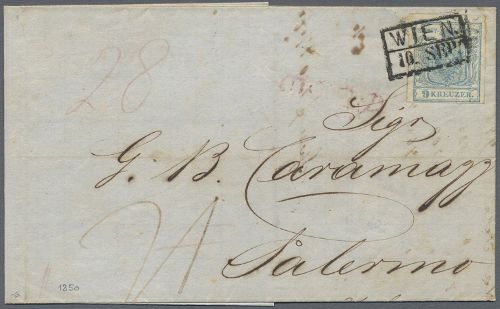 WIEN.
10. SEP.
9 KREUZER.
28
Sigr
G. B. Caramazz
Palermo
1850